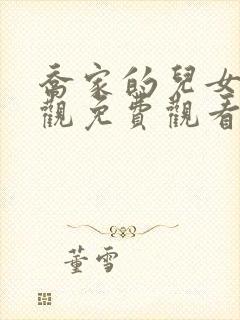 喬家的兒女
觀免費觀看
董雪